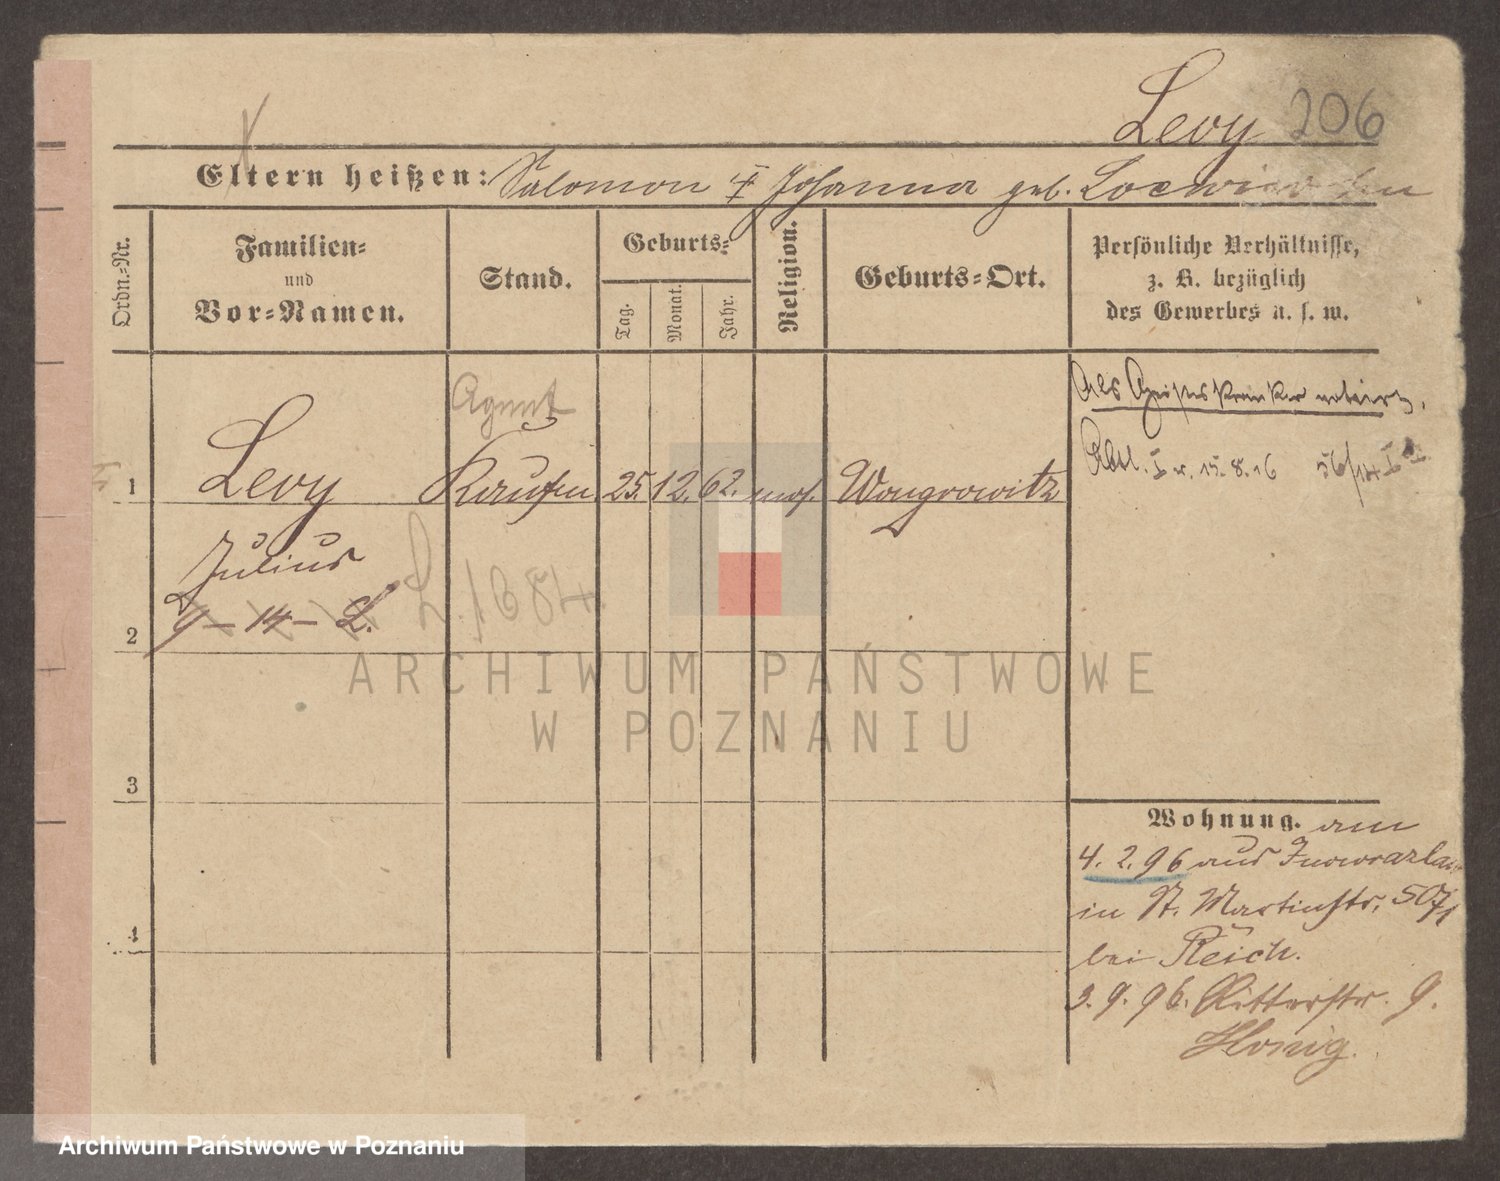 Levy 206
Eltern heißen: Salomon Johanna geb.
Ordn.-Nr.
Familien-
und
Vor-Namen.
Stand.
Geburts-
Tag.
Monat.
Jahr.
Religion.
Geburts-Ort.
Persönliche Verhältnisse,
z. B. bezüglich
des Gewerbes u. s. w.
Agent
Als Geisteskranker notiert,
1 Levy Kaufm 25. 12. 62. mos. Wongrowitz
Abtl. I v. 15. 8. 16
Julius
9 - 14 - L.
L. 1684.
2
3
4
Wohnung. am
4. 2. 96 aus Inowrazlaw
in St. Martinstr. 50/1
bei Reich.
3. 9. 96. Ritterstr. 9.
Honig.
ARCHIWUM PAŃSTWOWE
W POZNANIU
Archiwum Państwowe w Poznaniu